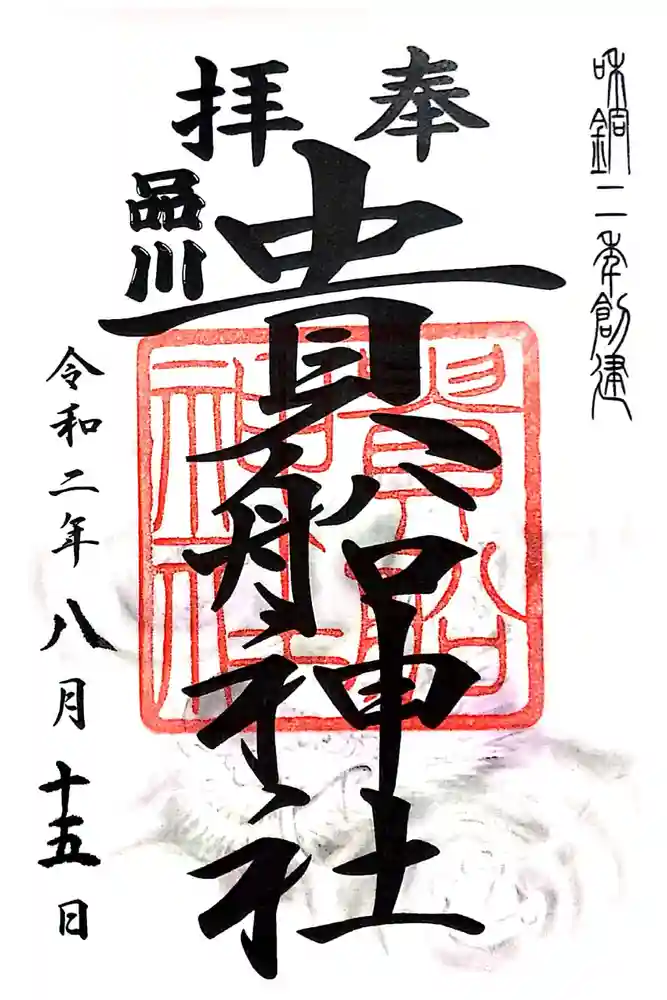 和銅二年創建
奉拝
品川
貴船神社
貴船神社
令和二年八月十五日